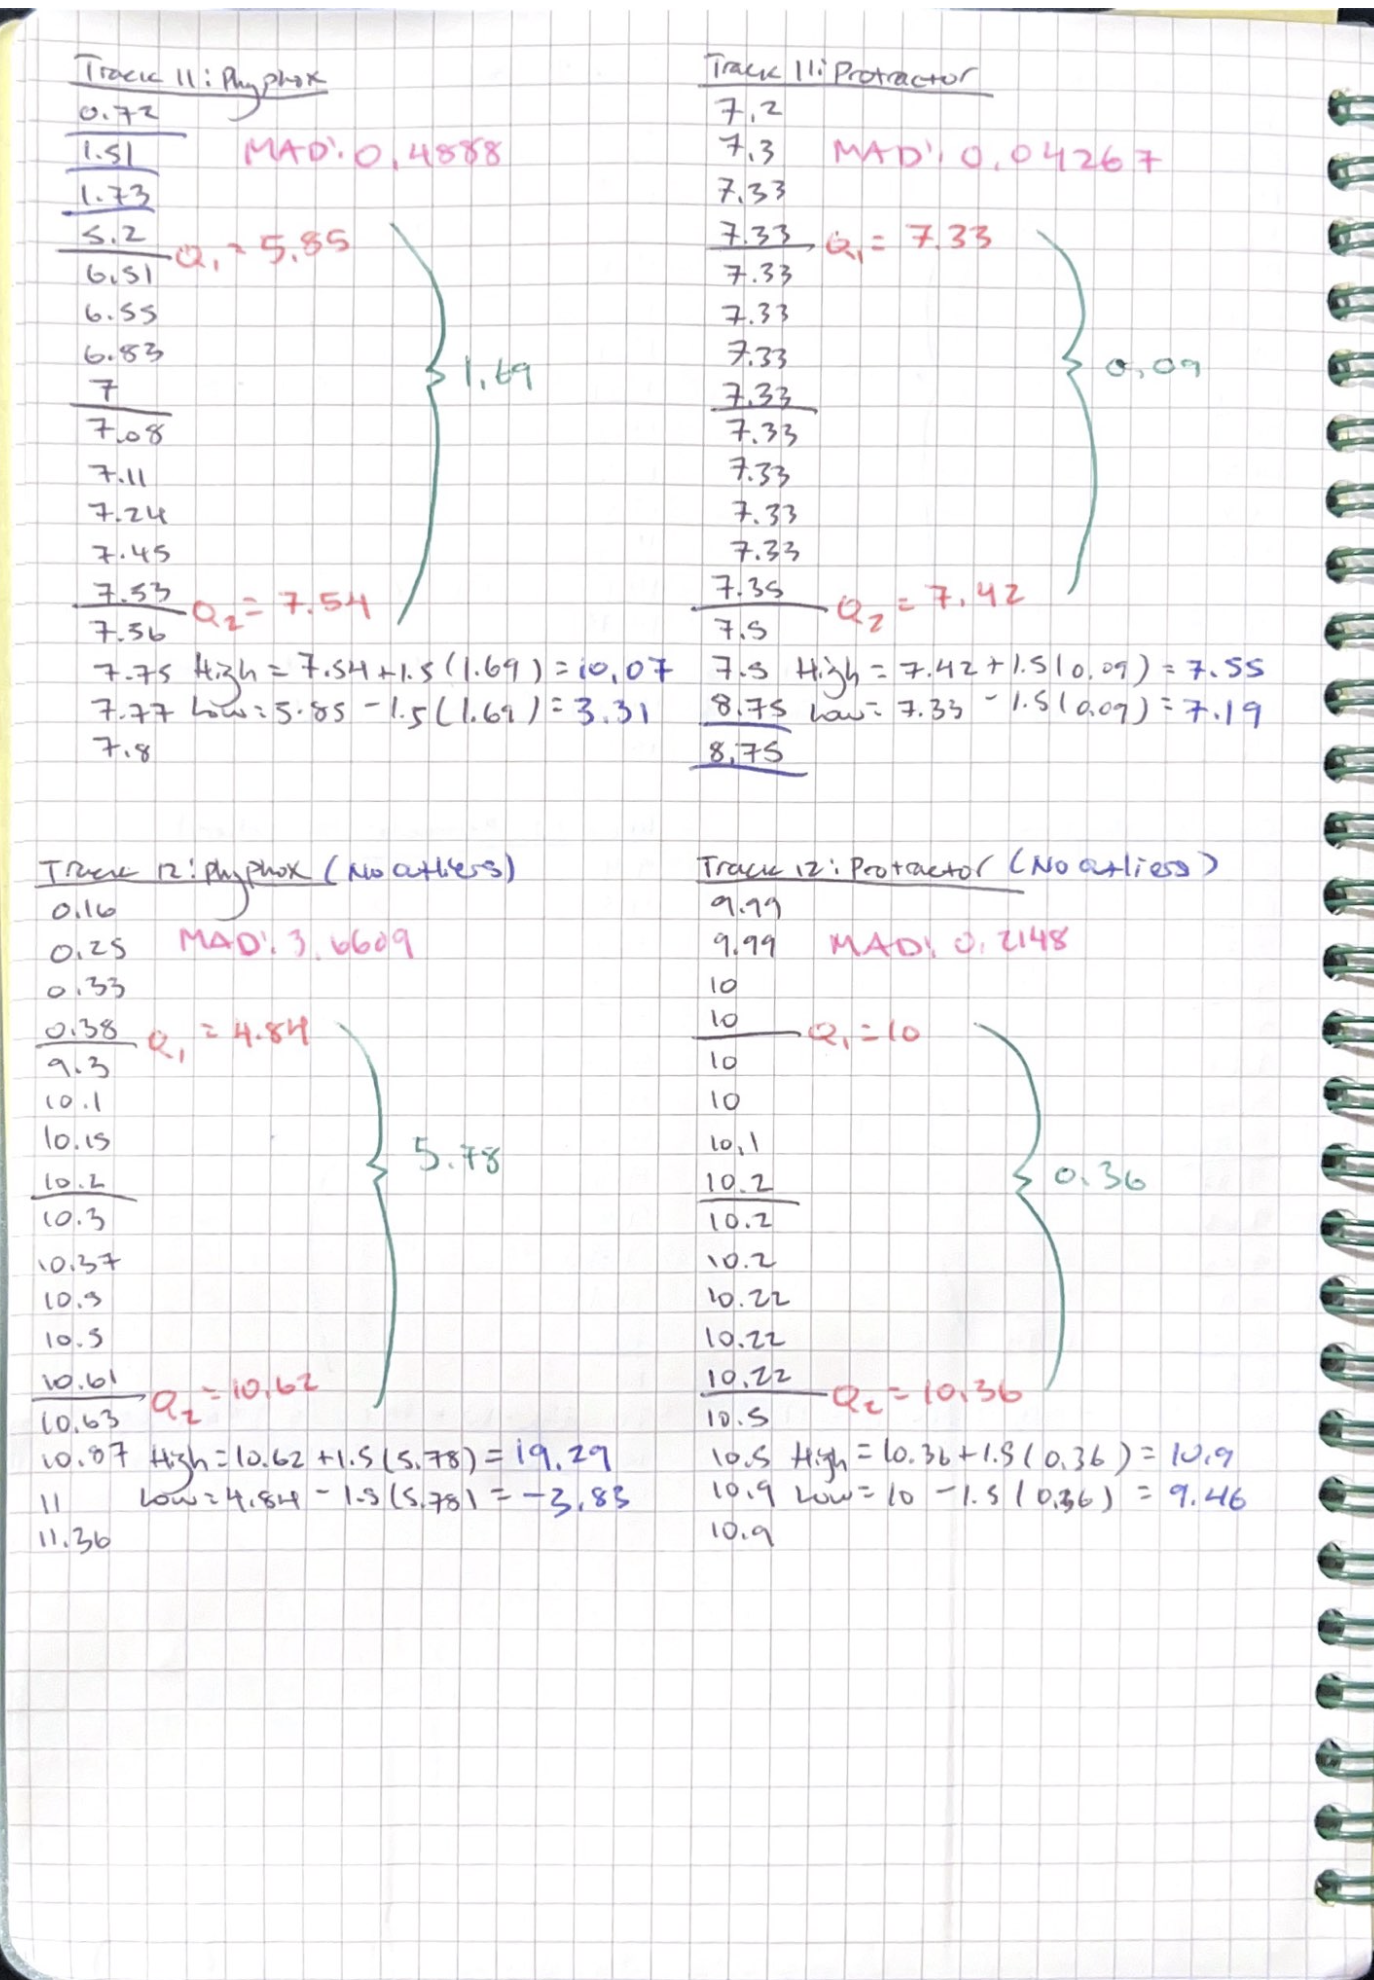 Track 11: Phyphox
0.72
1.51 MAD: 0.4888
1.73
5.2
Q1 = 5.85
6.51
6.55
6.83
7
1.69
7.08
7.11
7.24
7.45
7.53
Q2 = 7.54
7.56
7.75 High = 7.54 + 1.5 (1.69) = 10.07
7.77 Low = 5.85 - 1.5 (1.69) = 3.31
7.8
Track 11: Protractor
7.2
7.3 MAD: 0.04267
7.33
7.33 Q1 = 7.33
7.33
7.33
7.33
0.09
7.33
7.33
7.33
7.33
7.33
7.35
Q2 = 7.42
7.5
7.5 High = 7.42 + 1.5 (0.09) = 7.55
8.75 Low = 7.33 - 1.5 (0.09) = 7.19
8.75
Track 12: Phyphox (No outliers)
0.16
0.25 MAD: 3.6609
0.33
0.38 Q1 = 4.84
9.3
10.1
10.15
5.78
10.2
10.3
10.37
10.5
10.5
10.61
Q2 = 10.62
10.63
10.87 High = 10.62 + 1.5 (5.78) = 19.29
11 Low = 4.84 - 1.5 (5.78) = -3.83
11.36
Track 12: Protractor (No outliers)
9.99
9.99 MAD: 0.2148
10
10
Q1 = 10
10
10
10.1
10.2
0.36
10.2
10.2
10.22
10.22
10.22
Q2 = 10.36
10.5
10.5 High = 10.36 + 1.5 (0.36) = 10.9
10.9 Low = 10 - 1.5 (0.36) = 9.46
10.9